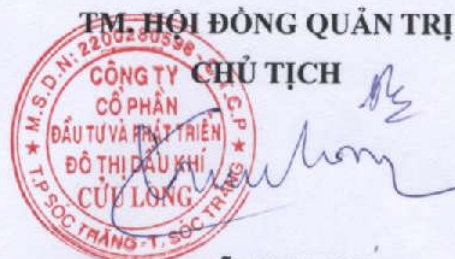 TM. HỘI ĐỒNG QUẢN TRỊ
CHỦ TỊCH
M.S.D.N: 2200280598 - C.T.C.P
CÔNG TY
CỔ PHẦN
ĐẦU TƯ VÀ PHÁT TRIỂN
ĐÔ THỊ DẦU KHÍ
CỬU LONG
T.P SÓC TRĂNG - T. SÓC TRĂNG